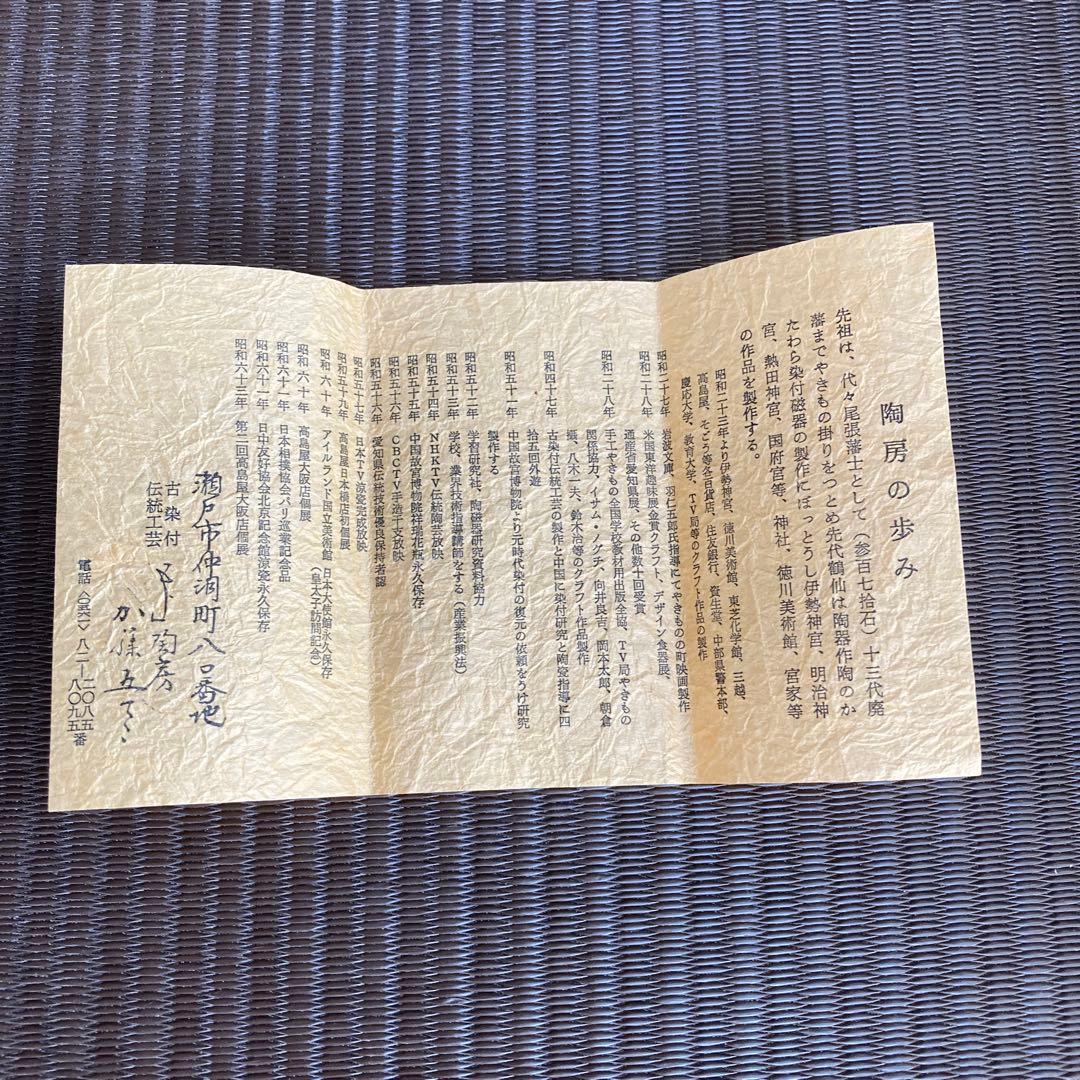 陶房の歩み
先祖は、代々尾張藩士として（参百七拾石）十三代廃
藩までやきもの掛りをつとめ先代鶴仙は陶器作陶のか
たわら染付磁器の製作にぼっとうし伊勢神宮、明治神
宮、熱田神宮、国府宮等、神社、徳川美術館、宮家等
の作品を製作する。
昭和二十三年より伊勢神宮、徳川美術館、東芝化学館、三越、
高島屋、そごう等各百貨店、住友銀行、資生堂、中部県警本部、
慶応大学、教育大学、TV局等のクラフト作品の製作
昭和二十七年 岩波文庫、羽仁五郎氏指導にてやきもの町映画製作
昭和二十八年 米国東洋趣味展金賞クラフト、デザイン食器展、
通産省愛知県展、その他数十回受賞
昭和二十八年 手工やきもの全国学校教材用出版全協、TV局やきもの
関係協力、イサム・ノグチ、向井良吉、岡本太郎、朝倉
攝、八木一夫、鈴木治等のクラフト作品製作
昭和四十七年 古染付伝統工芸の製作と中国に染付研究と陶瓷指導に四
拾五回外遊
昭和五十一年 中国故宮博物院より元時代染付の復元の依頼をうけ研究
製作する
昭和五十二年 学習研究社、陶磁器研究資料協力
昭和五十三年 学校、業界技術指導講師をする（産業振興法）
昭和五十四年 NHKTV伝統陶芸放映
昭和五十五年 中国故宮博物院祥瑞花瓶永久保存
昭和五十六年 CBCTV手造千文放映
昭和五十六年 愛知県伝統技術優良保持者認
昭和五十七年 日本TV涼瓷完成放映
昭和五十九年 高島屋日本橋店初個展
昭和六十年 アイルランド国立美術館 日本大使館永久保存
（皇太子訪問記念）
昭和六十年 高島屋大阪店個展
昭和六十一年 日本相撲協会パリ巡業記念品
昭和六十一年 日中友好協会北京記念館涼瓷永久保存
昭和六十三年 第二回高島屋大阪店個展
瀬戸市仲洞町八〇番地
古染付
伝統工芸
陶房
加藤五
電話〈〇五六一〉八二―二〇八五
八〇九五番